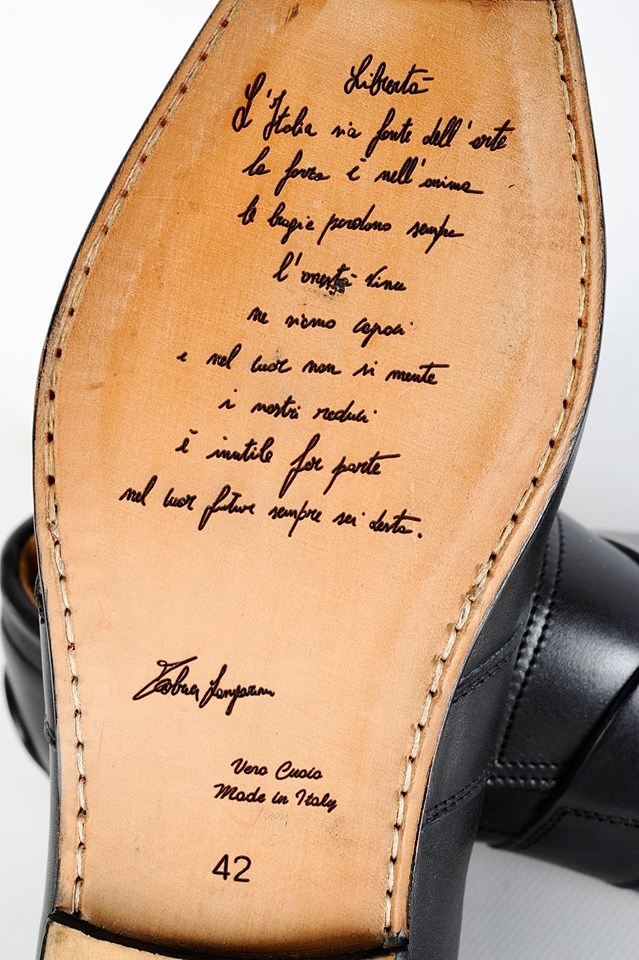 Libertà
L'Italia sia fonte dell'arte
la forza è nell'anima
le bragie perdono sempre
l'onestà vince
ne siamo capaci
e nel cuor non si mente
i nostri reduci
è inutile for parte
nel cuor futuro sempre sei desta.
Vero Cuoio
Made in Italy
42